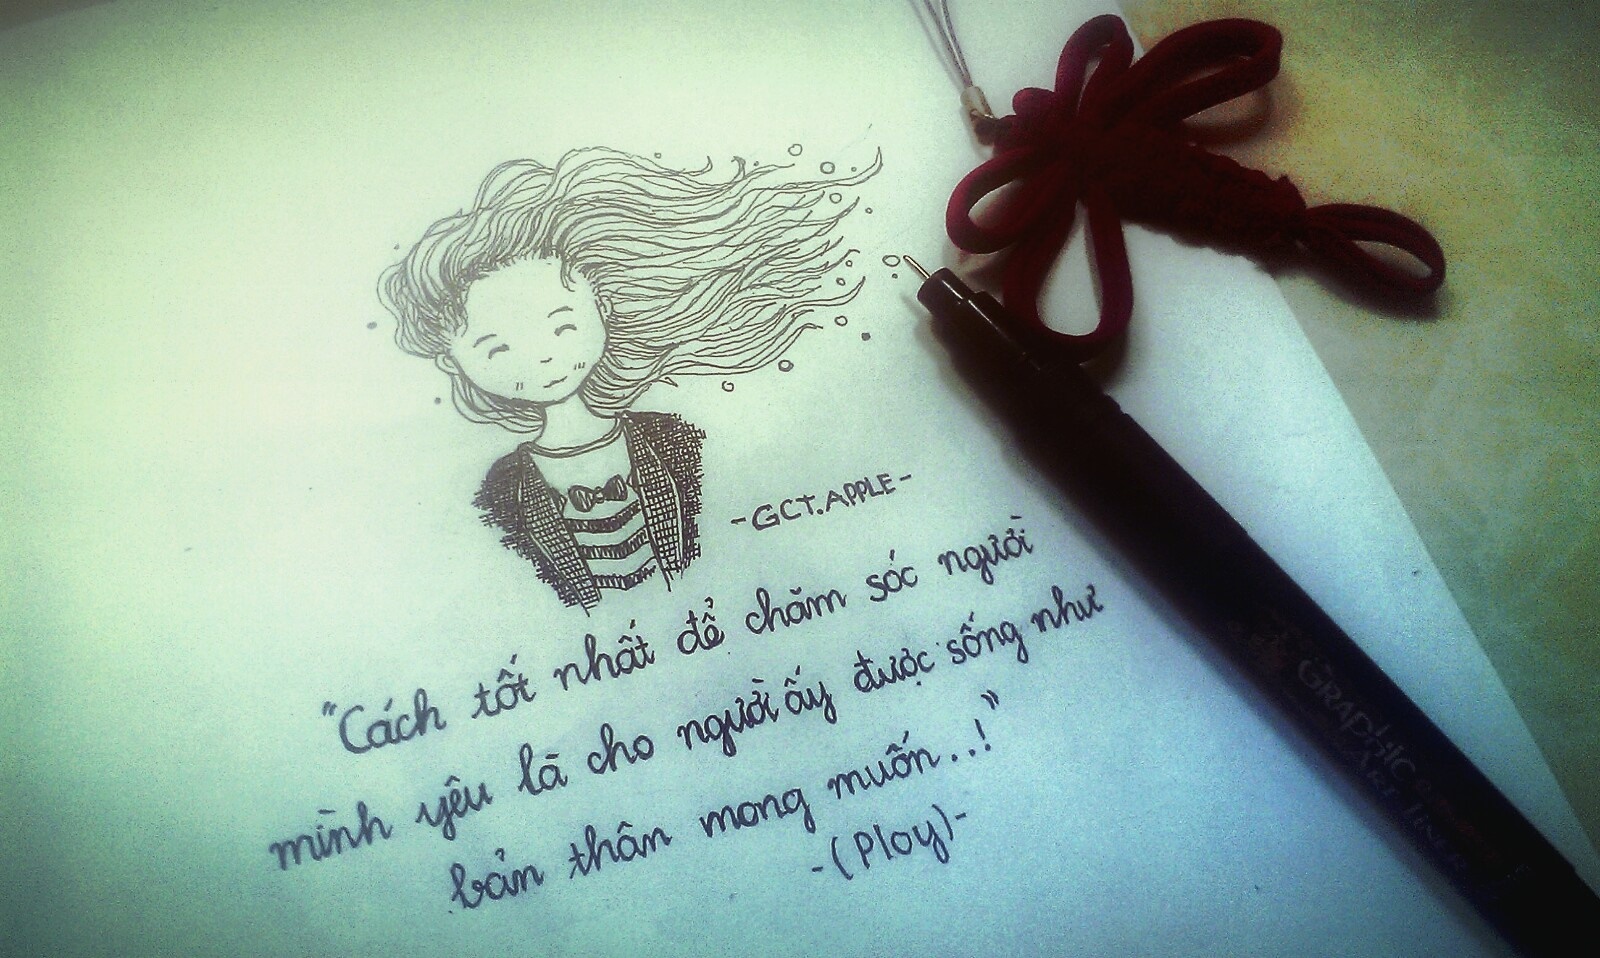 -GCT.APPLE-
"Cách tốt nhất để chăm sóc người
mình yêu là cho người ấy được sống như
bản thân mong muốn...!"
-(Ploy)-
GRAPHIC
LINER